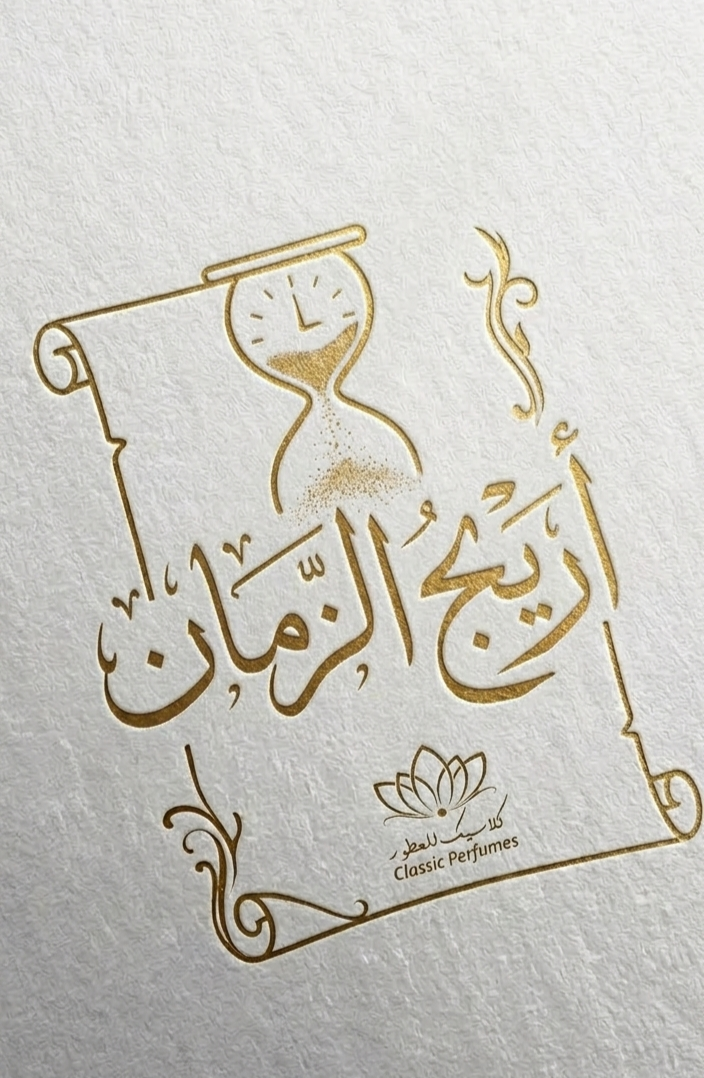 أَرِيَجُ الزَّمان
كلاسيك للعطور
Classic Perfumes